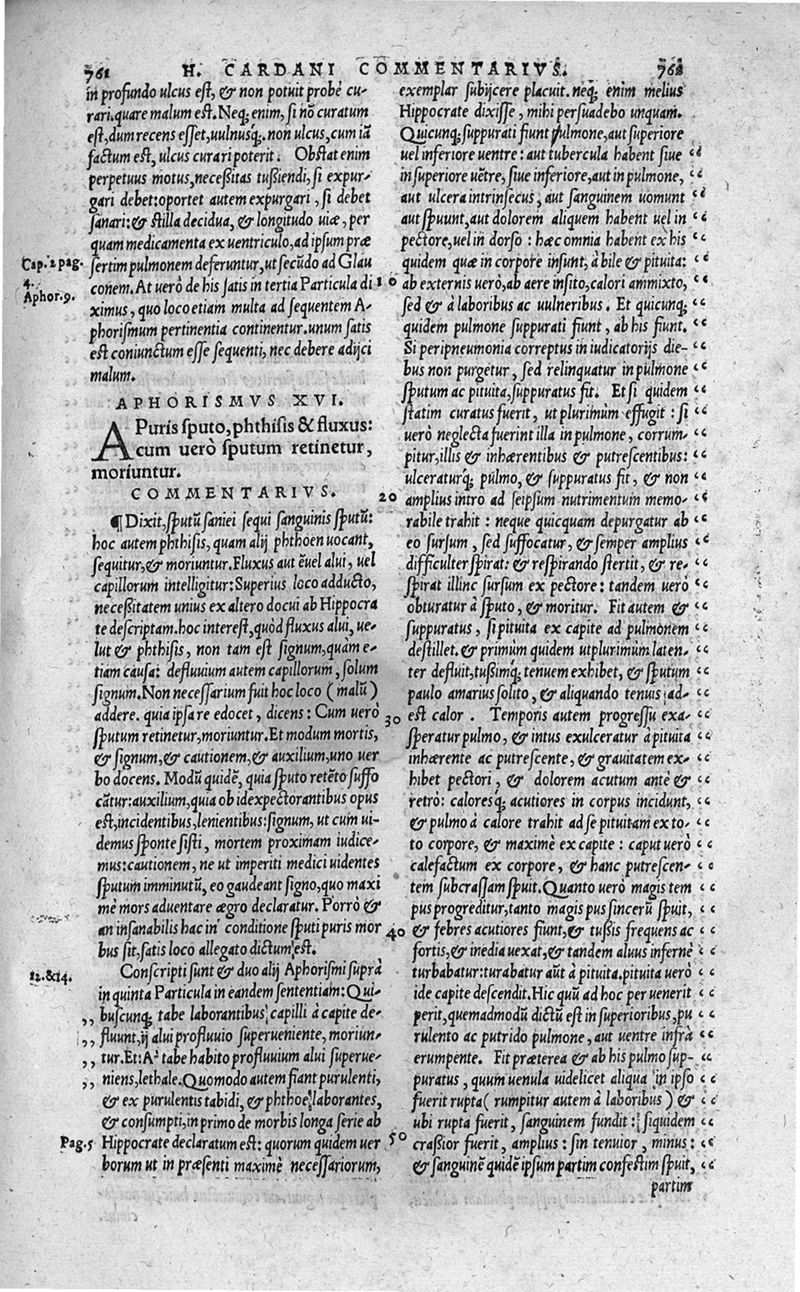 761 H. CARDANI COMMENTARIVS. 762
in profundo ulcus est, & non potuit probè cu-
rari. quare malum est. Neq; enim, si nō curatum
est, dum recens esset, uulnusq́;. non ulcus, cum iā
factum est, ulcus curari poterit. Obstat enim
perpetuus motus, necessitas tussiendi, si expur-
gari debet: oportet autem expurgari, si debet
sanari: & stilla decidua, & longitudo uiæ, per
quam medicamenta ex uentriculo, ad ipsum præ
Cap. 2 pag.
sertim pulmonem deferuntur, ut secūdo ad Glau
4.
conem. At uerò de his satis in tertia Particula di
Aphor. 9.
ximus, quo loco etiam multa ad sequentem A-
phorismum pertinentia continentur. unum satis
est coniunctum esse sequenti, nec debere adijci
malum.
APHORISMVS XVI.
A Puris sputo, phthisis & fluxus:
cum uerò sputum retinetur,
moriuntur.
COMMENTARIVS.
¶ Dixit, sputū saniei sequi sanguinis sputū:
hoc autem phthisis, quam alij phthoen uocant,
sequitur, & moriuntur. Fluxus aut ēuel alui, uel
capillorum intelligitur: Superius loco adducto,
necessitatem unius ex altero docui ab Hippocra
te descriptam. hoc interest, quòd fluxus alui, ue-
lut & phthisis, non tam est signum, quàm e-
tiam causa: defluuium autem capillorum, solum
signum. Non necessarium fuit hoc loco (malū)
addere. quia ipsa re edocet, dicens: Cum uerò
sputum retinetur, moriuntur. Et modum mortis,
& signum, & cautionem, & auxilium, uno uer
bo docens. Modū quidē, quia sputo retēto suffo
cātur: auxilium, quia ob id expectorantibus opus
est, incidentibus, lenientibus: signum, ut cum ui-
demus sponte sisti, mortem proximam iudice-
mus: cautionem, ne ut imperiti medici uidentes
sputum imminutū, eo gaudeant signo, quo maxi
mè mors aduentare ægro declaratur. Porrò &
an insanabilis hac in conditione sputi puris mor
bus sit, satis loco allegato dictum est.
12. & 14.
Conscripti sunt & duo alij Aphorismi suprà
in quinta Particula in eandem sententiam: Qui-
,, buscunq; tabe laborantibus capilli à capite de-
,, fluunt, ij alui profluuio superueniente, moriun-
,, tur. Et: A tabe habito profluuium alui superue-
,, niens, lethale. Quomodo autem fiant purulenti,
& ex purulentis tabidi, & phthoe laborantes,
& consumpti, in primo de morbis longa serie ab
Pag. 5
Hippocrate declaratum est: quorum quidem uer
borum ut in præsenti maximè necessariorum,
exemplar subijcere placuit. neq; enim melius
Hippocrate dixisse, mihi persuadebo unquam.
Quicunq; suppurati fiunt pulmone, aut superiore
uel inferiore uentre: aut tubercula habent siue “
in superiore uētre, siue inferiore, aut in pulmone, “
aut ulcera intrinsecus, aut sanguinem uomunt “
aut spuunt, aut dolorem aliquem habent uel in “
pectore, uel in dorso: hæc omnia habent ex his “
quidem quæ in corpore insunt, à bile & pituita: “
10 ab externis uerò, ab aere insito, calori ammixto, “
sed & à laboribus ac uulneribus. Et quicunq; “
quidem pulmone suppurati fiunt, ab his fiunt. “
Si peripneumonia correptus in iudicatorijs die- “
bus non purgetur, sed relinquatur in pulmone “
sputum ac pituita, suppuratus fit. Et si quidem “
statim curatus fuerit, ut plurimùm effugit: si “
uerò neglecta fuerint illa in pulmone, corrum- “
pitur, illis & inhærentibus & putrescentibus: “
ulceraturq́; pulmo, & suppuratus fit, & non “
20 amplius intro ad seipsum nutrimentum memo- “
rabile trahit: neque quicquam depurgatur ab “
eo sursum, sed suffocatur, & semper amplius “
difficulter spirat: & respirando stertit, & re- “
spirat illinc sursum ex pectore: tandem uerò “
obturatur à sputo, & moritur. Fit autem & “
suppuratus, si pituita ex capite ad pulmonem “
destillet. & primùm quidem utplurimùm laten- “
ter defluit, tussimq́; tenuem exhibet, & sputum “
paulo amarius solito, & aliquando tenuis ad- “
30 est calor. Temporis autem progressu exa- “
speratur pulmo, & intus exulceratur à pituita “
inhærente ac putrescente, & grauitatem ex- “
hibet pectori, & dolorem acutum antè & “
retrò: caloresq́; acutiores in corpus incidunt, “
& pulmo à calore trahit ad se pituitam ex to- “
to corpore, & maximè ex capite: caput uerò “
calefactum ex corpore, & hanc putrescen- “
tem subcrassam spuit. Quanto uerò magis tem “
pus progreditur, tanto magis pus sincerū spuit, “
40 & febres acutiores fiunt, & tussis frequens ac “
fortis, & inedia uexat, & tandem aluus infernè “
turbabatur: turabatur aūt à pituita. pituita uerò “
ide capite descendit. Hic quū ad hoc peruenerit “
perit, quemadmodū dictū est in superioribus, pu “
rulento ac putrido pulmone, aut uentre infrà “
erumpente. Fit præterea & ab his pulmo sup- “
puratus, quum uenula uidelicet aliqua in ipso “
fuerit rupta (rumpitur autem à laboribus) & “
ubi rupta fuerit, sanguinem fundit: siquidem “
50 crassior fuerit, amplius: sin tenuior, minus: “
& sanguinē quidē ipsum partim confestim spuit, “
partim